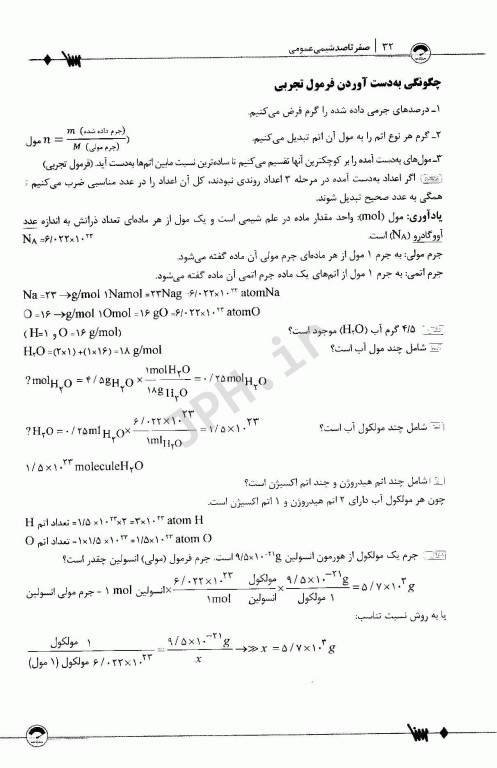 ۳۲ | صفر تا صد شیمی عمومی
چگونگی به‌دست آوردن فرمول تجربی
۱ـ درصدهای جرمی داده شده را گرم فرض می‌کنیم.
۲ـ گرم هر نوع اتم را به مول آن اتم تبدیل می‌کنیم. (مول n = m (جرم داده شده) / M (جرم مولی)
۳ـ مول‌های به‌دست آمده را بر کوچکترین آنها تقسیم می‌کنیم تا ساده‌ترین نسبت مابین اتم‌ها به‌دست آید. (فرمول تجربی)
اگر اعداد به‌دست آمده در مرحله ۳ اعداد روندی نبودند، کل آن اعداد را در عدد مناسبی ضرب می‌کنیم تا
همگی به عدد صحیح تبدیل شوند.
یادآوری: مول (mol): واحد مقدار ماده در علم شیمی است و یک مول از هر ماده‌ای تعداد ذراتش به اندازه عدد
آووگادرو (NA) است. NA =۶/۰۲۲×۱۰^۲۳
جرم مولی: به جرم ۱ مول از هر ماده‌ای جرم مولی آن ماده گفته می‌شود.
جرم اتمی: به جرم ۱ مول از اتم‌های یک ماده جرم اتمی آن ماده گفته می‌شود.
Na =۲۳ →g/mol ۱Namol =۲۳Nag =۶/۰۲۲×۱۰^۲۳ atomNa
O =۱۶ →g/mol ۱Omol =۱۶ gO =۶/۰۲۲×۱۰^۲۳ atomO
۴/۵ گرم آب (H۲O) موجود است؟ (H=۱ و O =۱۶ g/mol)
شامل چند مول آب است؟ H۲O =(۲×۱) +(۱×۱۶) =۱۸ g/mol
?molH۲O = ۴/۵gH۲O × ۱molH۲O / ۱۸gH۲O = ۰/۲۵molH۲O
شامل چند مولکول آب است؟ ?H۲O = ۰/۲۵mlH۲O× ۶/۰۲۲×۱۰^۲۳ / ۱mlH۲O = ۱/۵×۱۰^۲۳
۱/۵×۱۰^۲۳ moleculeH۲O
شامل چند اتم هیدروژن و چند اتم اکسیژن است؟
چون هر مولکول آب دارای ۲ اتم هیدروژن و ۱ اتم اکسیژن است.
H تعداد اتم =۱/۵ ×۱۰^۲۳×۲ =۳×۱۰^۲۳ atom H
O تعداد اتم =۱×۱/۵ ×۱۰^۲۳ =۱/۵×۱۰^۲۳ atom O
جرم یک مولکول از هورمون انسولین ۹/۵×۱۰^-۲۱g است. جرم فرمول (مولی) انسولین چقدر است؟
جرم مولی انسولین - ۱ mol انسولین× ۶/۰۲۲×۱۰^۲۳ مولکول / ۱mol انسولین × ۹/۵×۱۰^-۲۱g / ۱ مولکول = ۵/۷×۱۰^۳ g
یا به روش نسبت تناسب:
۱ مولکول / ۶/۰۲۲×۱۰^۲۳ مولکول (۱ مول) = ۹/۵×۱۰^-۲۱ g / x →≫ x = ۵/۷×۱۰^۳ g
JPH.ir